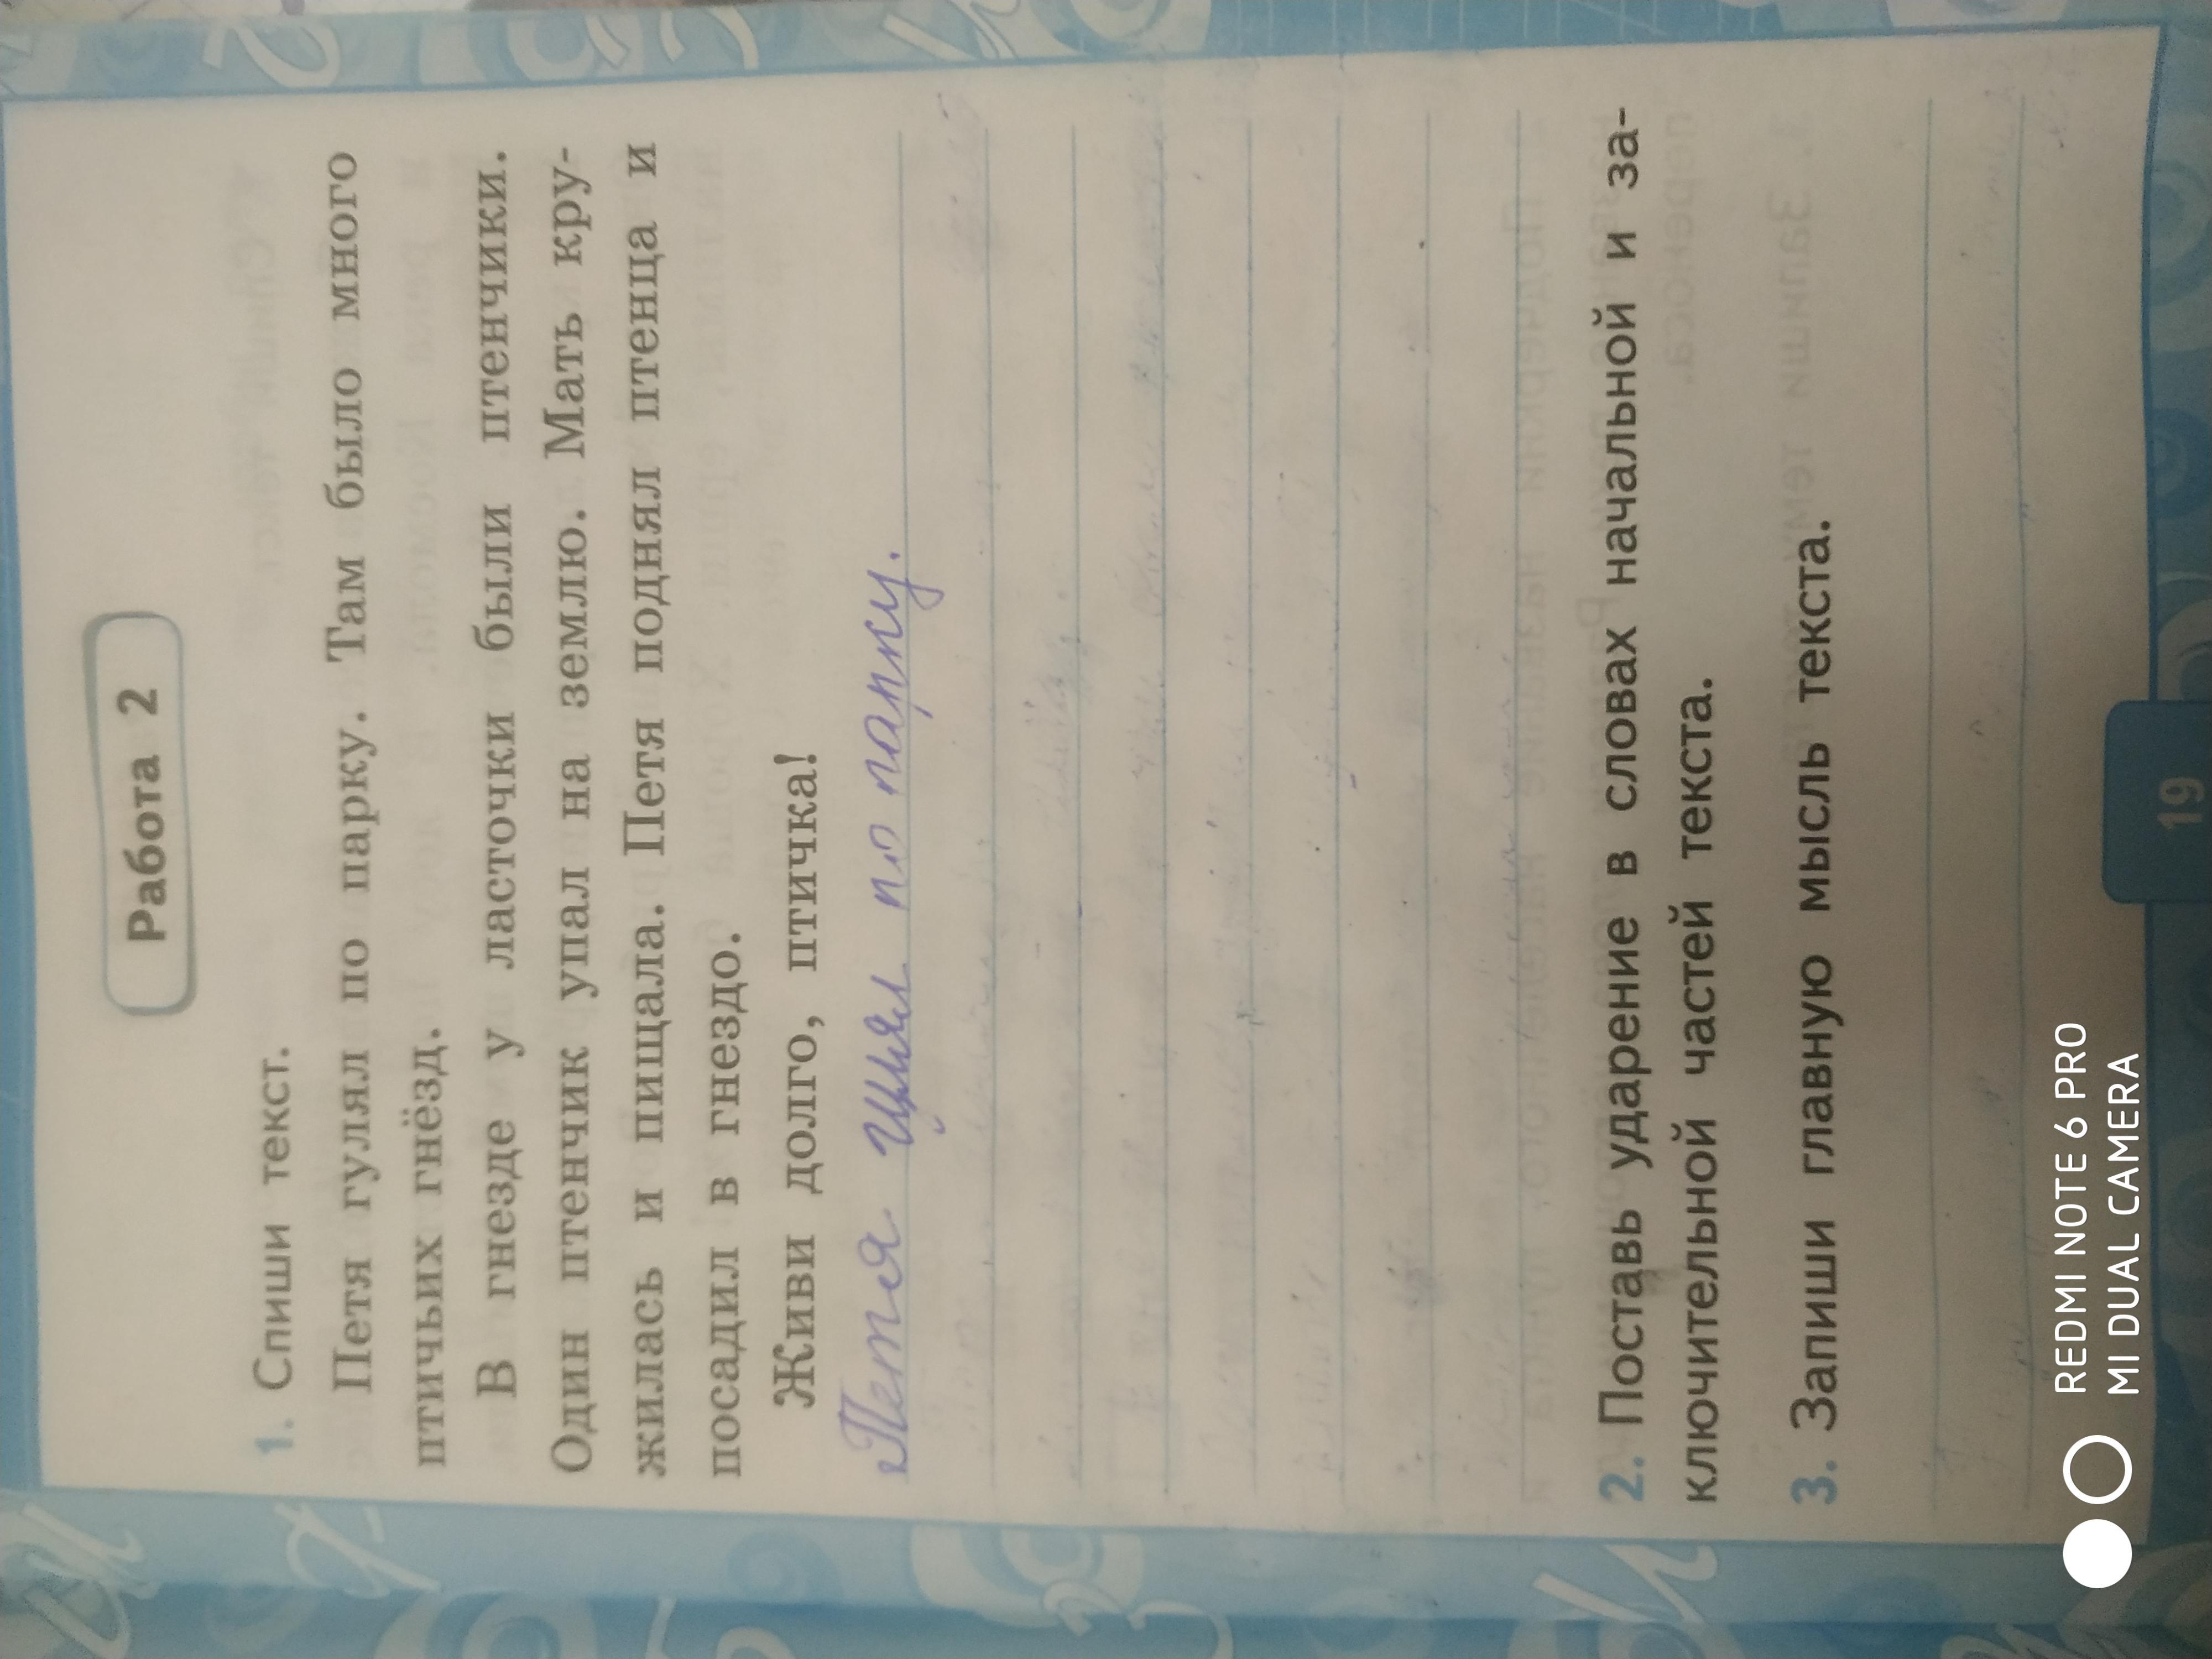 Работа 2
1. Спиши текст.
Петя гулял по парку. Там было много
птичьих гнёзд.
В гнезде у ласточки были птенчики.
Один птенчик упал на землю. Мать кру-
жилась и пищала. Петя поднял птенца и
посадил в гнездо.
Живи долго, птичка!
Петя по парку.
2. Поставь ударение в словах начальной и за-
ключительной частей текста.
3. Запиши главную мысль текста.
19
REDMI NOTE 6 PRO
MI DUAL CAMERA